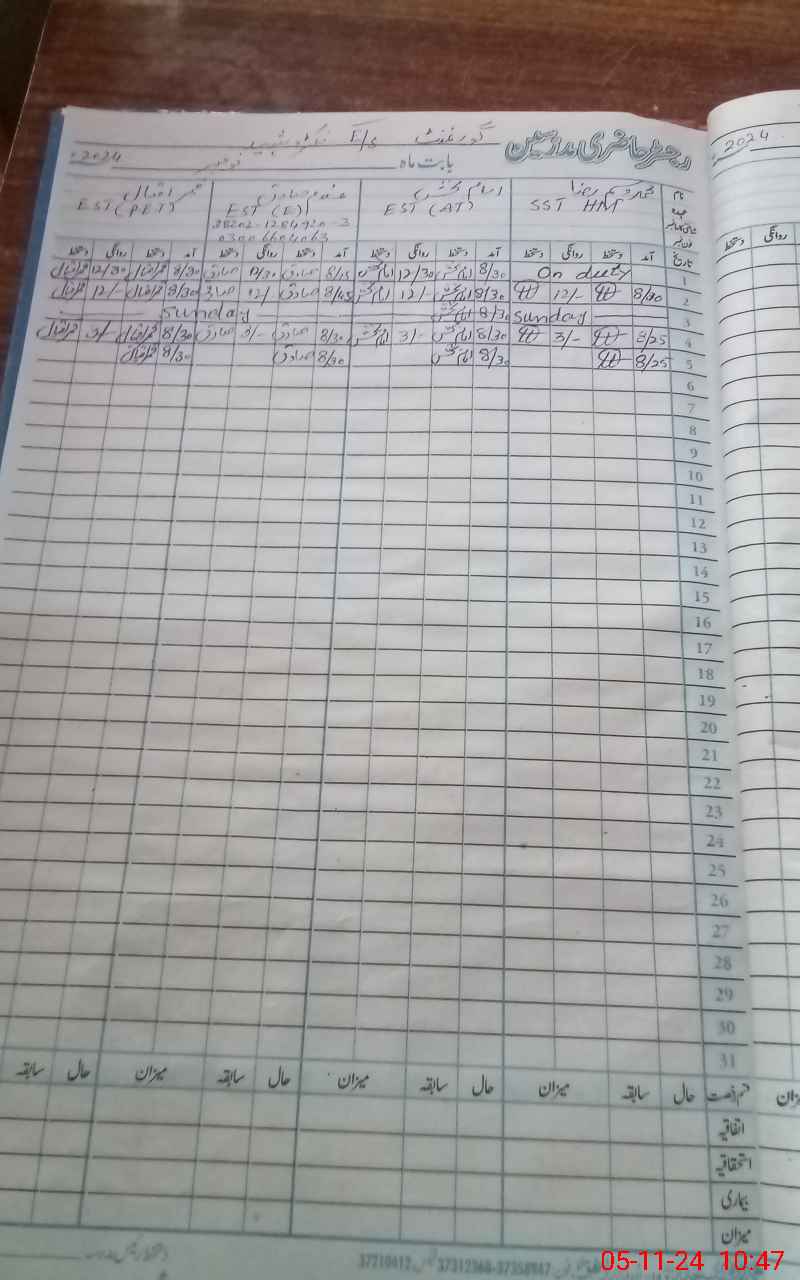 رجسٹر حاضری مدرسین گورنمنٹ E/S
بابت ماہ نومبر 2024
2024
نام
عہدہ
SST HM
امام بخش EST (AT)
صادق EST (E)
قمر اقبال EST (PET)
38202-1284920-3
03006604063
تاریخ آمد دستخط روانگی دستخط آمد دستخط روانگی دستخط آمد دستخط روانگی دستخط آمد دستخط روانگی دستخط
روانگی دستخط
1 On duty 8/30 امام بخش 12/30 امام بخش 8/45 صادق 12/30 صادق 8/30 قمر اقبال 12/30 قمر اقبال
2 8/30 12/- 8/30 امام بخش 12/- امام بخش 8/45 صادق 12/- صادق 8/30 قمر اقبال 12/- قمر اقبال
3 Sunday 8/30 امام بخش Sunday
4 8/25 3/- 8/30 امام بخش 3/- امام بخش 8/30 صادق 3/- صادق 8/30 قمر اقبال 3/- قمر اقبال
5 8/25 8/30 امام بخش 8/30 صادق 8/30 قمر اقبال
6
7
8
9
10
11
12
13
14
15
16
17
18
19
20
21
22
23
24
25
26
27
28
29
30
31
قسم رخصت حال سابقہ میزان حال سابقہ میزان حال سابقہ میزان حال سابقہ
اتفاقیہ
استحقاقیہ
بیماری
میزان
37312368-37358947
37210412
05-11-24 10:47